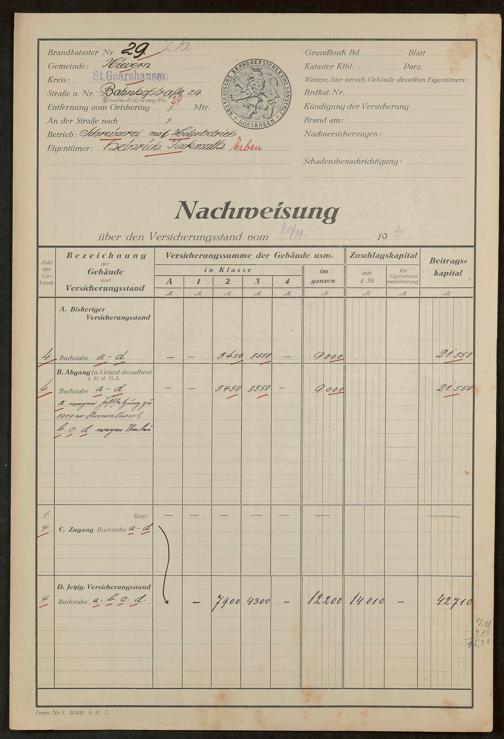 Brandkataster Nr. 29
Gemeinde: Nievern
Kreis: St. Goarshausen
Straße u. Nr. Bahnhofstraße 29
Entfernung vom Ortsbering 29 Mtr.
An der Straße nach
Betrieb: Schreinerei mit Motorbetrieb
Eigentümer: Heinrich Erben
NASSAUISCHE BRANDVERSICHERUNGSANSTALT WIESBADEN
Grundbuch Bd. Blatt
Kataster Ktbl. Parz.
Weitere, hier versich. Gebäude desselben Eigentümers:
Brdkat. Nr.
Kündigung der Versicherung
Brand am:
Nachversicherungen:
Schadensbenachrichtigung:
Nachweisung
über den Versicherungsstand vom 20/11. 19
Zahl der Gebäude
Bezeichnung der Gebäude und Versicherungsstand
Versicherungssumme der Gebäude usw.
in Klasse
A 1 2 3 4
im ganzen
Zuschlagskapital
aus § 35
für Explosionsversicherung
Beitragskapital
A. Bisheriger Versicherungsstand
4 Buchstabe a-d — — 5450 3550 — 9000 21550
B. Abgang (u. Grund desselben)
4 Buchstabe a-d — — 5450 3550 - 9000 21550
a wegen
b c d wegen Umbau
Rest — — — — — — — — —
4 C. Zugang Buchstabe a-d
D. Jetzig. Versicherungsstand
4 Buchstabe a. b. c. d. - 7900 4300 - 12200 14010 - 42710
Form. Nr. 1. 30000